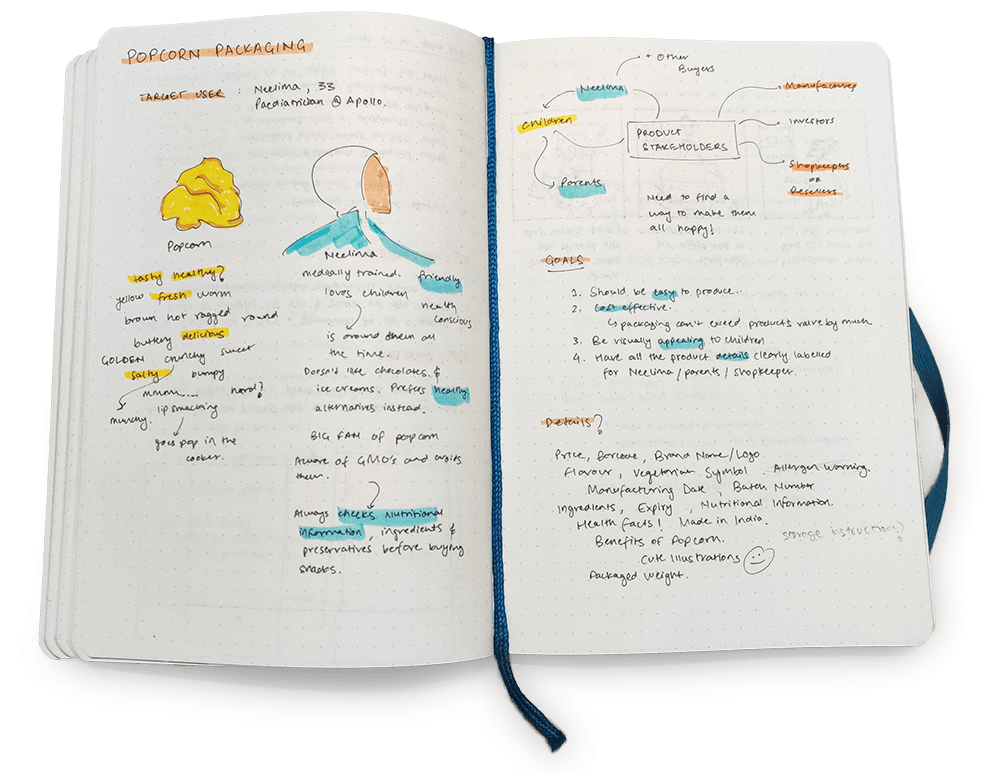 POPCORN PACKAGING
TARGET USER : Neelima, 33
Paediatrician @ Apollo.
Popcorn
tasty healthy?
yellow fresh warm
brown hot ragged round
buttery delicious
GOLDEN crunchy sweet
salty bumpy
mmmm.... hard?
munchy. lip smacking
goes pop in the
cooker
Neelima
medically trained. friendly
loves children health
conscious
is around them all
the time.
Doesn't like chocolates &
ice creams. Prefers healthy
alternatives instead.
BIG FAN of popcorn
Aware of GMO's and avoids
them.
Always checks Nutritional
information, ingredients &
preservatives before buying
snacks.
+ Other
Buyers
Neelima
Children
Parents
PRODUCT
STAKEHOLDERS
Manufacturer
investors
Shopkeepers
or
Resellers
Need to find a
way to make them
all happy!
GOALS
1. Should be easy to produce.
2. Cost effective.
↳ packaging can't exceed products value by much
3. Be visually appealing to children
4. Have all the product details clearly labelled
for Neelima/parents/shopkeeper.
Details?
Price, Barcode, Brand Name/Logo
Flavour, Vegetarian Symbol Allergen warning.
Manufacturing Date, Batch Number
ingredients, Expiry, Nutritional Information.
Health facts! Made in India.
Benefits of Popcorn. storage instruction?
Cute Illustrations
Packaged weight.